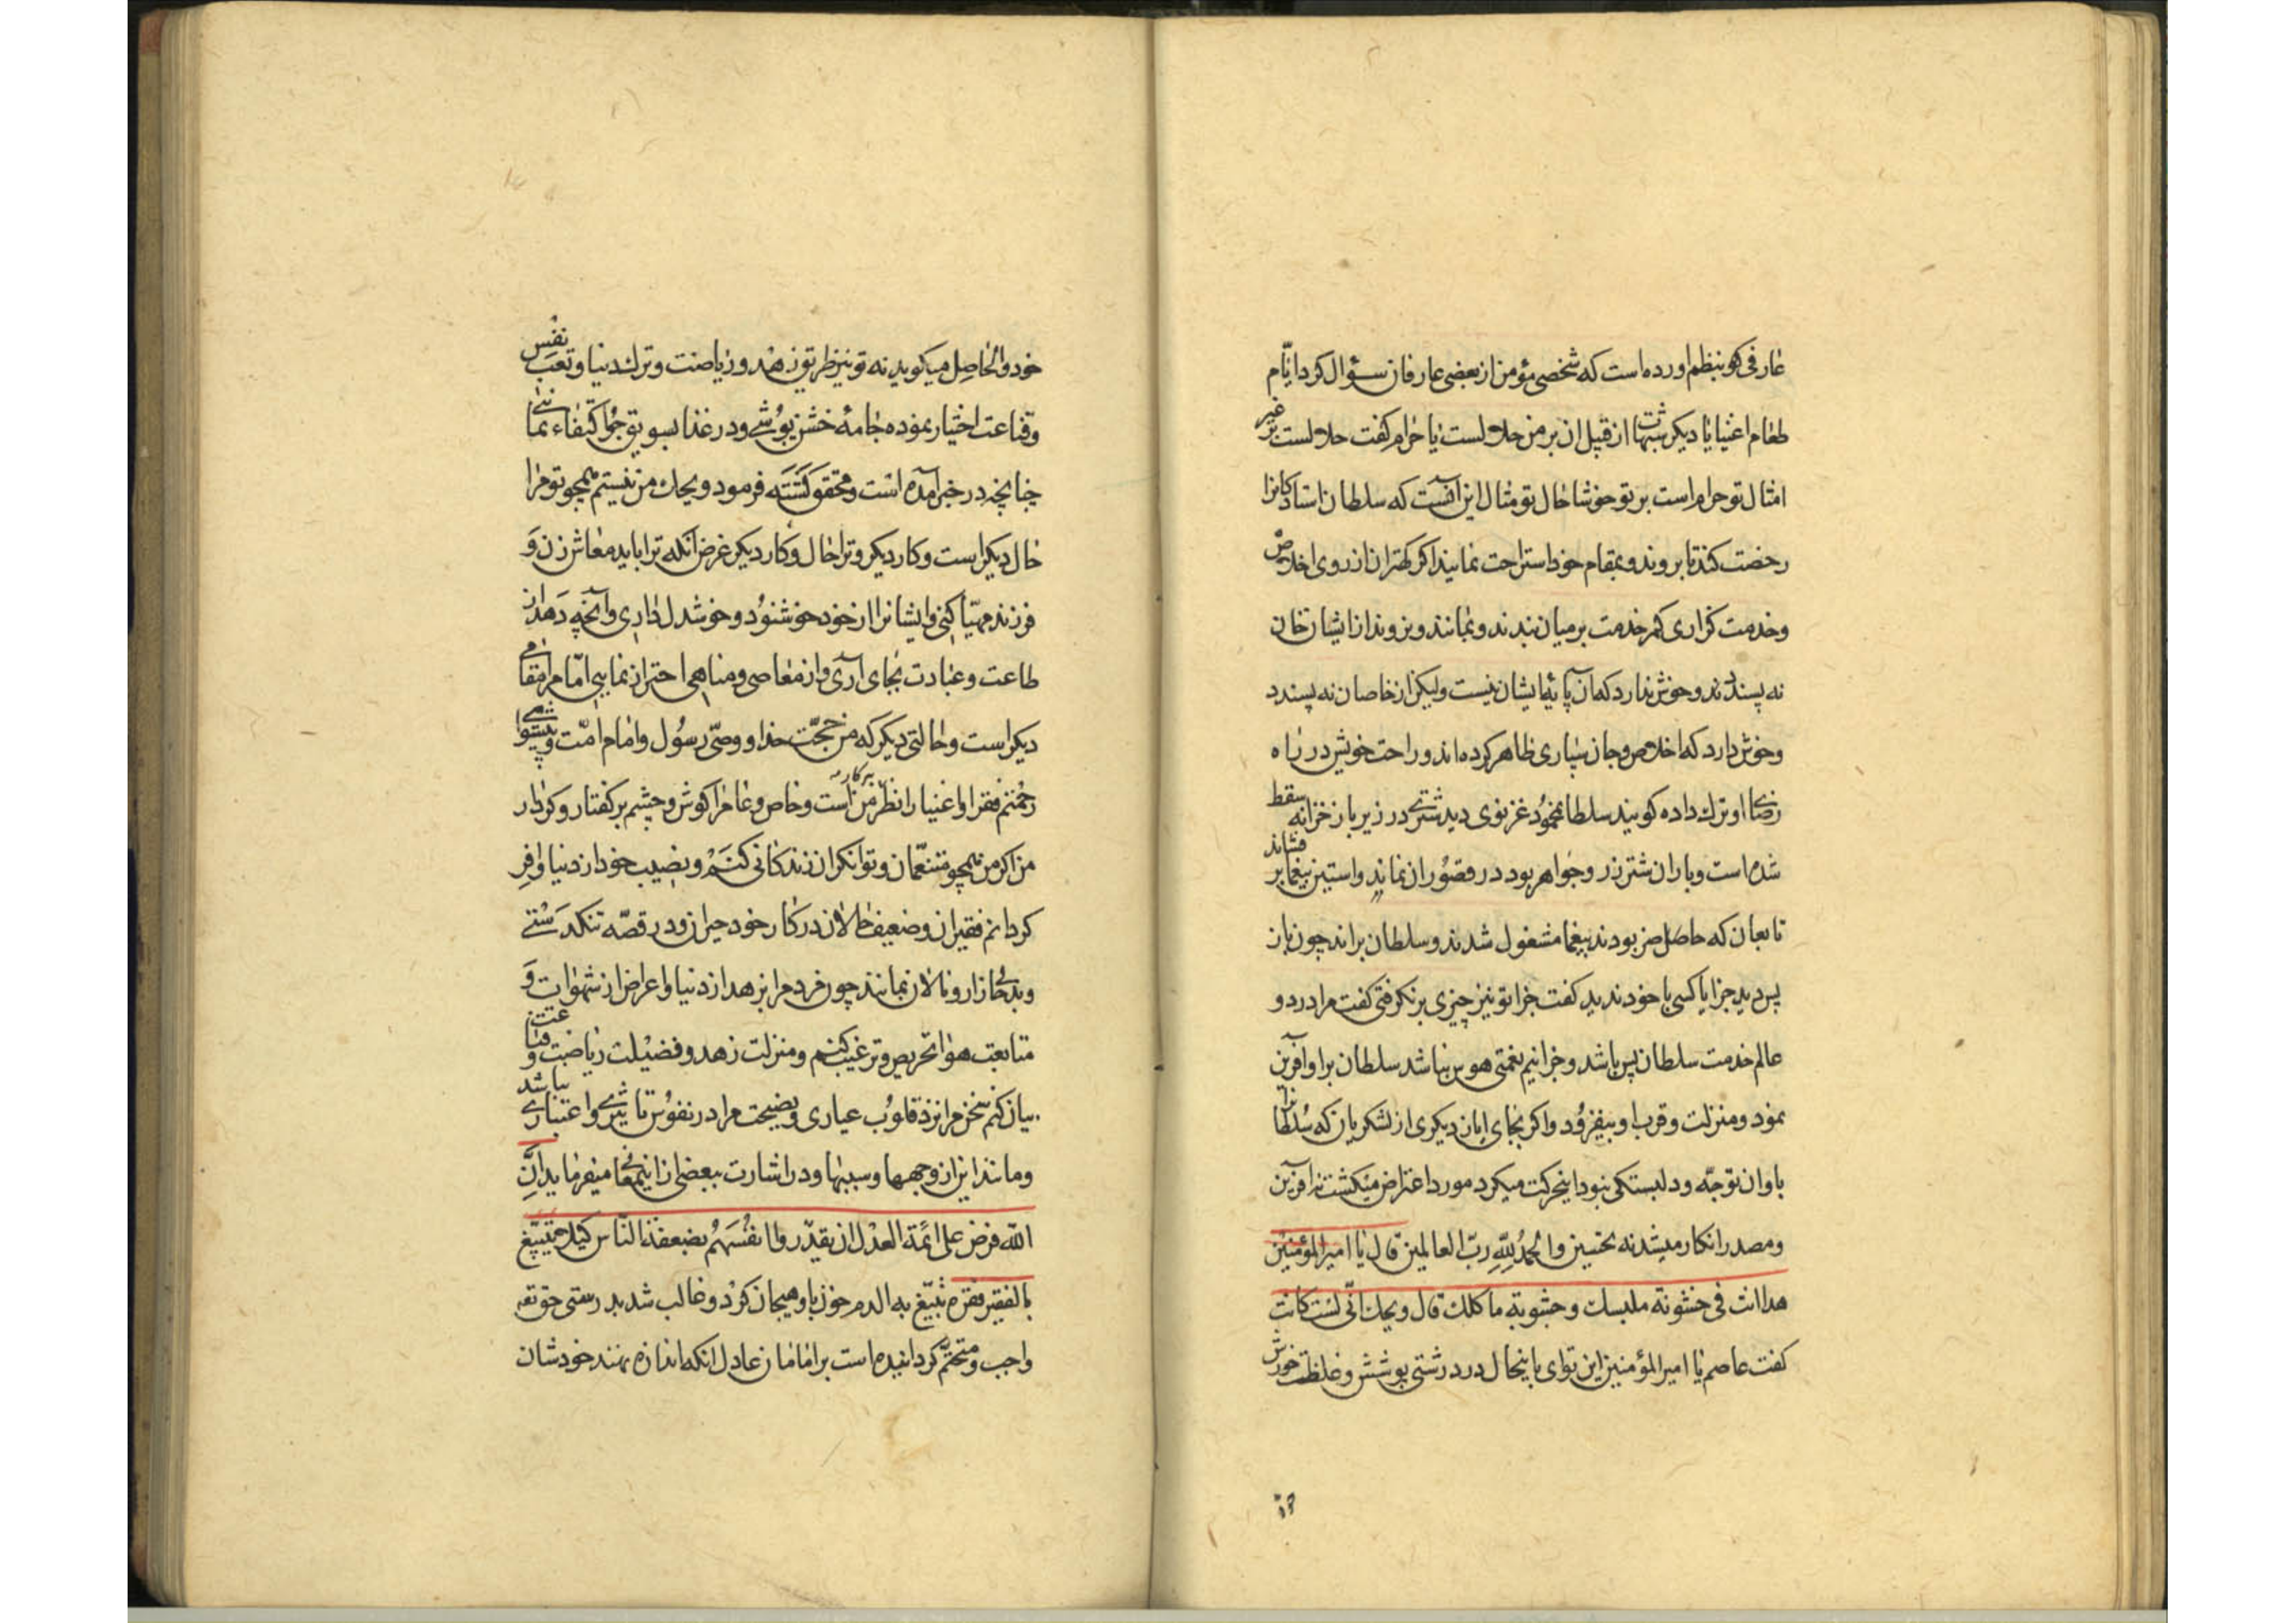 عارفی کو بنظم اورده است که شخصی مؤمن از بعضی عارفان سؤال کرد ایّام
طعام اغنیا یا دیکر شبهات از قبل ان بر من حلالست یا حرام کفت حلالست بر غیر
امثال تو حرام است بر تو خوشا حال تو مثال این انست که سلطان استادکانرا
رخصت کند تا بروند و بمقام خود استراحت نمایند اکر کهتران از روی اخلاص
وخدمت کزاری کمر خدمت بر میان بندند و بمانند و نروند از ایشان خان
نه پسندند و خوش ندارد که آن پایهٔ ایشان نیست ولیکن از خاصان نه پسندد
وخوش دارد که اخلاص و جان سپاری ظاهر کرده اند و راحت خویش در راه
رضای او ترک داده کویند سلطان محمود غزنوی دید شتری در زیر بار خزانه سقط
شده است و بار ان شتر زر و جواهر بود در قصور ان نماند و استین بیغما بر فشاند
تابعان که حاضر بودند بیغما مشغول شدند و سلطان براند چون باز
پس دید جز ایا کسی با خود ندید کفت چرا تو نیز چیزی بر نکرفتی کفت مرا در دو
عالم خدمت سلطان پس باشد و جز اینم بغمتی هوس نباشد سلطان بر او آفرین
نمود و منزلت و قرب او بیفزود و اکر بجای ایاز دیکری از لشکریان که سلطانرا
باوان توجّه و دلبستکی نبود اینحرکت میکرد مورد اعتراض میکشت نه آفرین
ومصدر انکار میشد نه تحسین والحمد للّه ربّ العالمین قال یا امیر المؤمنین
هذا انت فی خشونة ملبسک وجشوبة ماکلک قال ویحک انّی لست کانت
کفت عاصم یا امیر المؤمنین این توای باینحال در درشتی پوشش و غلظت خورش
خود والحاصل میکوید نه تو نیز طریق زهد و ریاضت و ترک دنیا و تعب نفس
وقناعت اختیار نموده جامهٔ خشن پوشی و در غذا بسویق جو اکتفاء نمائی
چنانچه در خبر آمده است و محقق کشته فرمود ویحک من نیستم همچو تو مرا
حال دیکر است و کار دیکر و ترا حال و کار دیکر غرض انکه ترا باید معاش زن و
فرزند مهیّا کنی و ایشانرا از خود خوشنود و خوشدل داری و آنچه دهد از
طاعت و عبادت بجای آری و از معاصی و مناهی احتراز نمایی امّا مرا مقامی
دیکر است و حالتی دیکر که من حجّت خدا و وصیّ رسول و امام امّت و پیشوای
رحمتم فقرا و اغنیا را نظر بر کار من است و خاص و عام را کوش و چشم بر کفتار و کردار
من اکر من همچو متنعّمان و توانکران زندکانی کنم و نصیب خود از دنیا وافر
کردانم فقیران و ضعیف حالان در کار خود حیران و در قصّه تنکدستی
وبدحالی زار و نالان بمانند چون مردم را بزهد از دنیا و اعراض از شهوات و
متابعت هوا تحریص و ترغیب کنم و منزلت زهد و فضیلت ریاضت و قناعت
بیان کنم سخن مرا نزد قلوب عیاری و نصیحت مرا در نفوس تاثیری و اعتباری نباشد
ومانند این از وجهها و سببها و در اشارت ببعضی از اینمعنی میفرماید انّ
اللّه فرض علی ائمّة العدل ان یقدّروا انفسهم بضعفة النّاس کیلا یتبیّغ
بالفقیر فقره تبیّغ به الدم خون باو هیجان کرد و غالب شد بدرستی حق تعالی
واجب و متحتّم کردانیده است بر امامان عادل انکه اندازه نهند خودشان